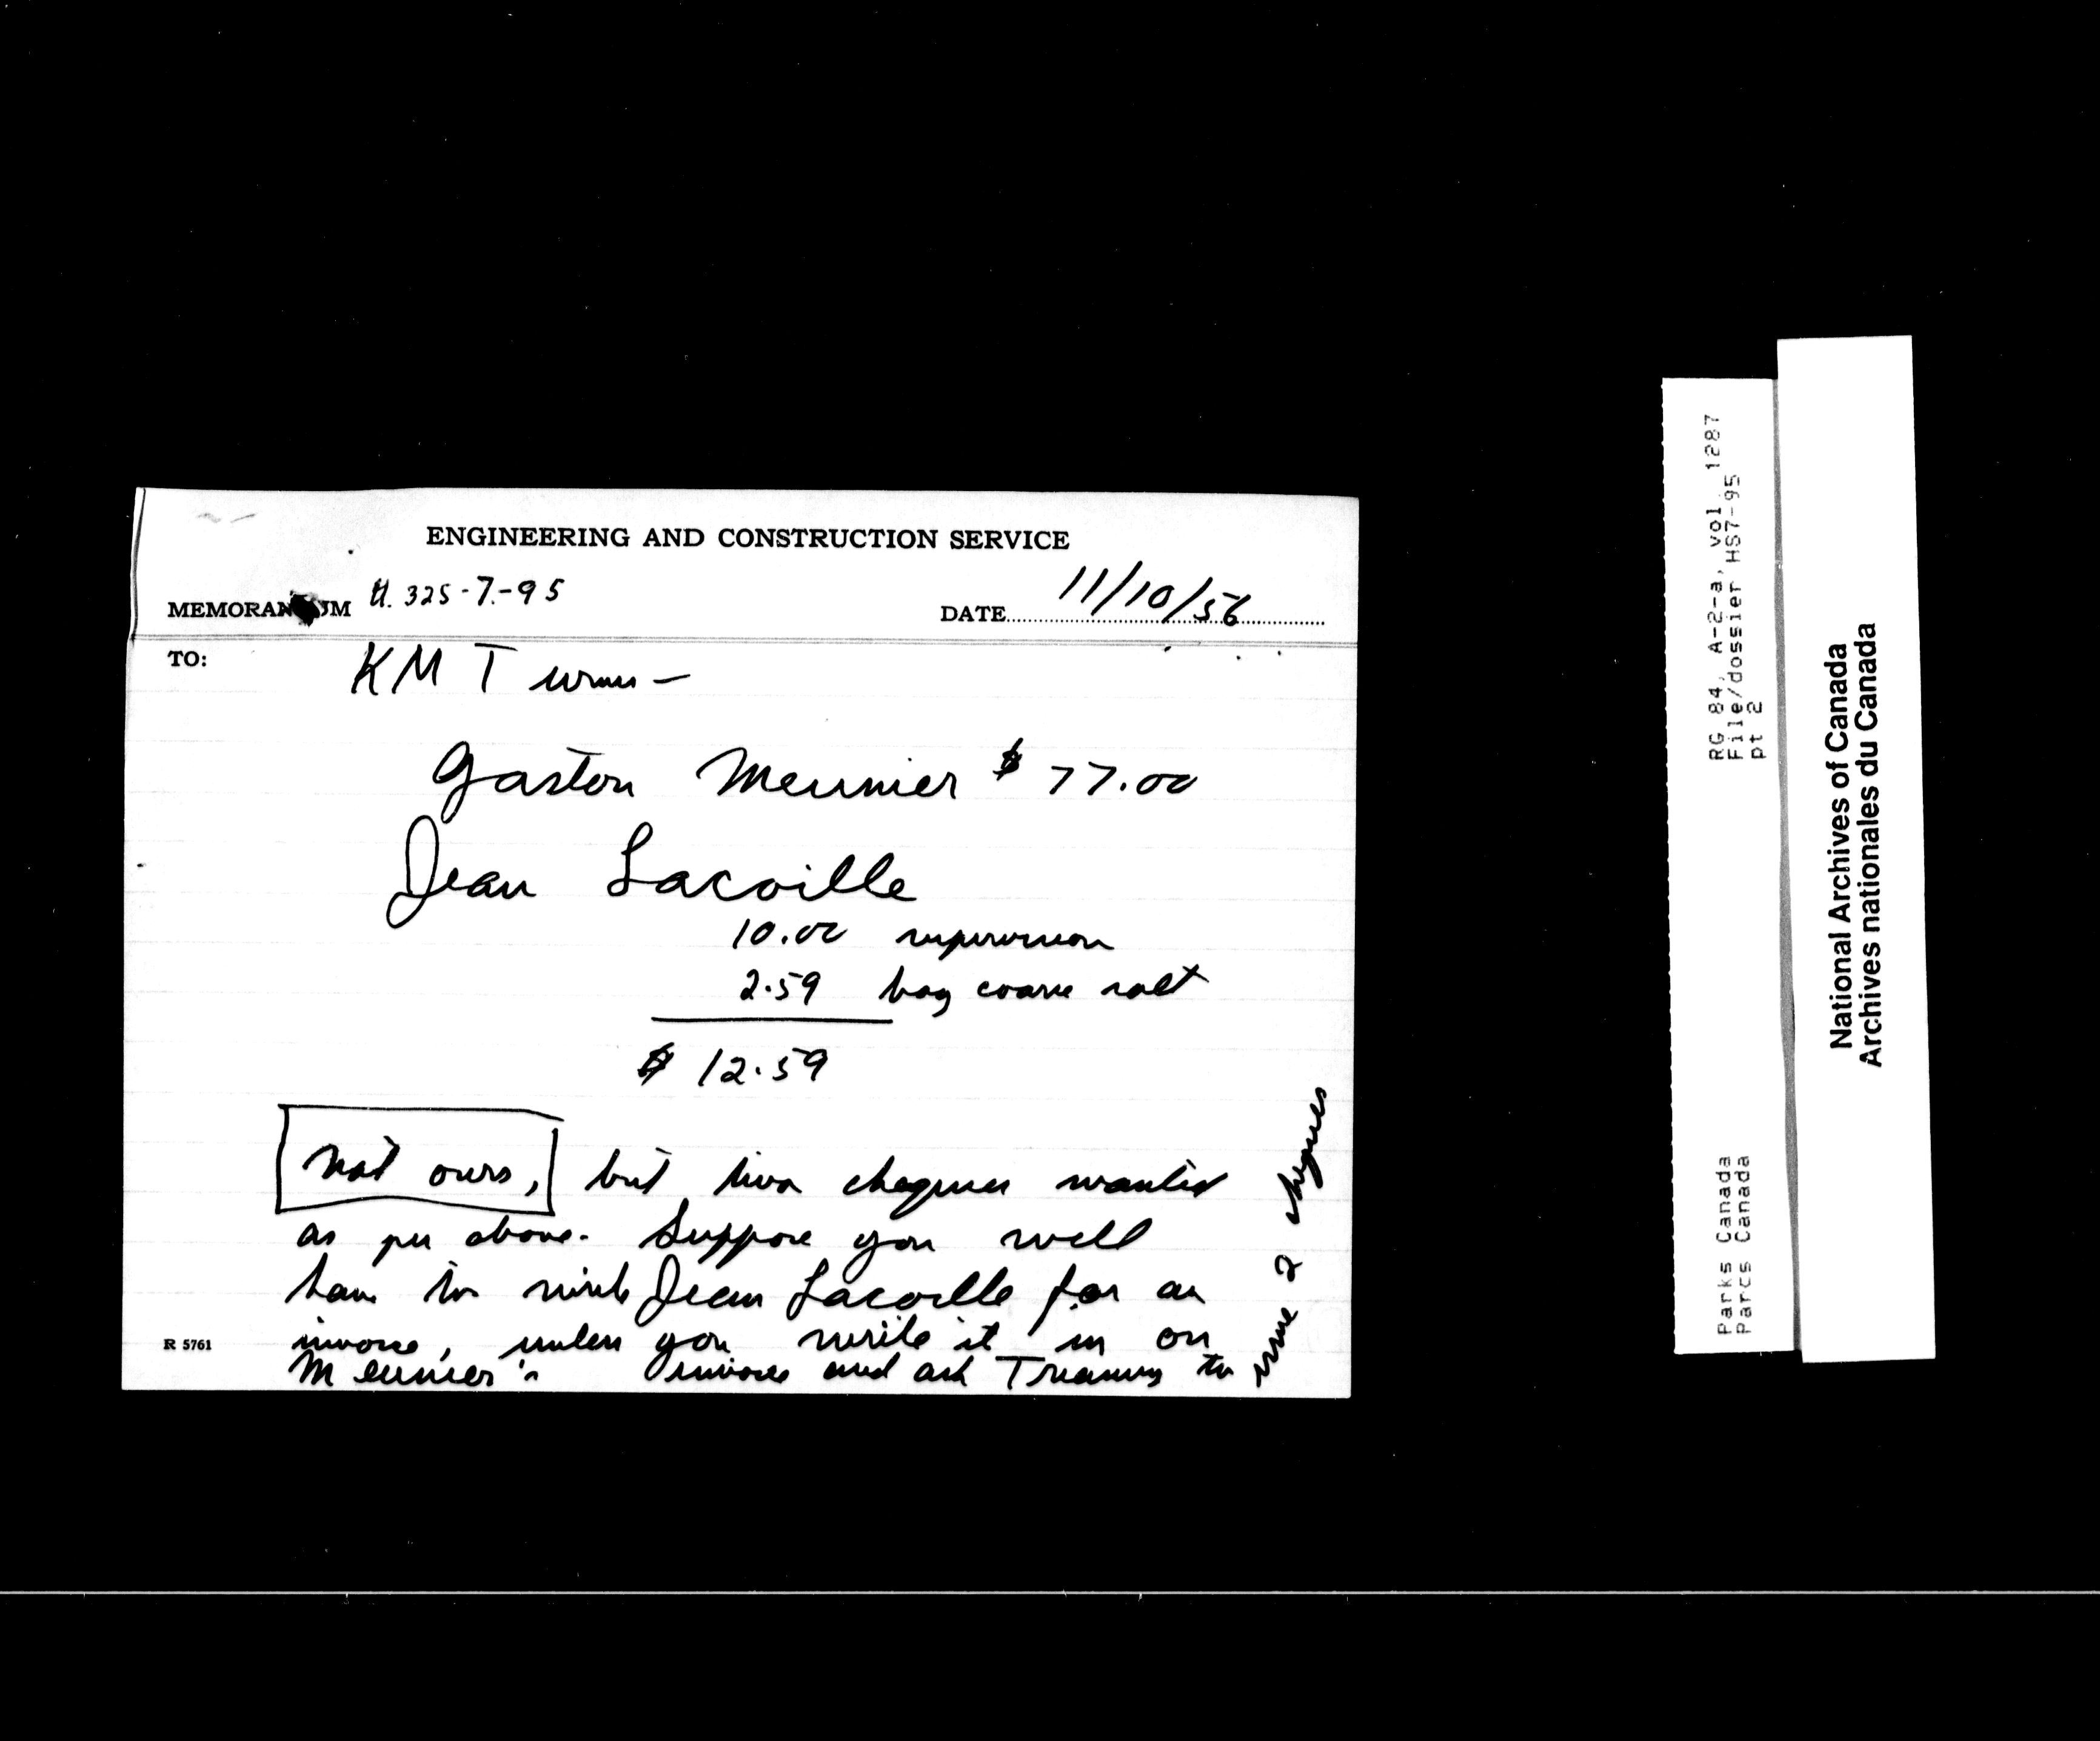 ENGINEERING AND CONSTRUCTION SERVICE
MEMORANDUM H. 325-7-95 DATE 11/10/56
TO: KM Turner —
Gaston Meunier $ 77.00
Jean Lacoille
10.00 supervision
2.59 bag coarse salt
$ 12.59
Not ours, but two cheques wanted
as per above. Suppose you will
have to write Jean Lacoille for an
invoice, unless you write it in on
Meunier's invoices and ask Treasury to
issue 2 cheques
R 5761
RG 84, A-2-a, vol. 1287
File/dossier HS7-95
pt 2
Parks Canada
Parcs Canada
National Archives of Canada
Archives nationales du Canada